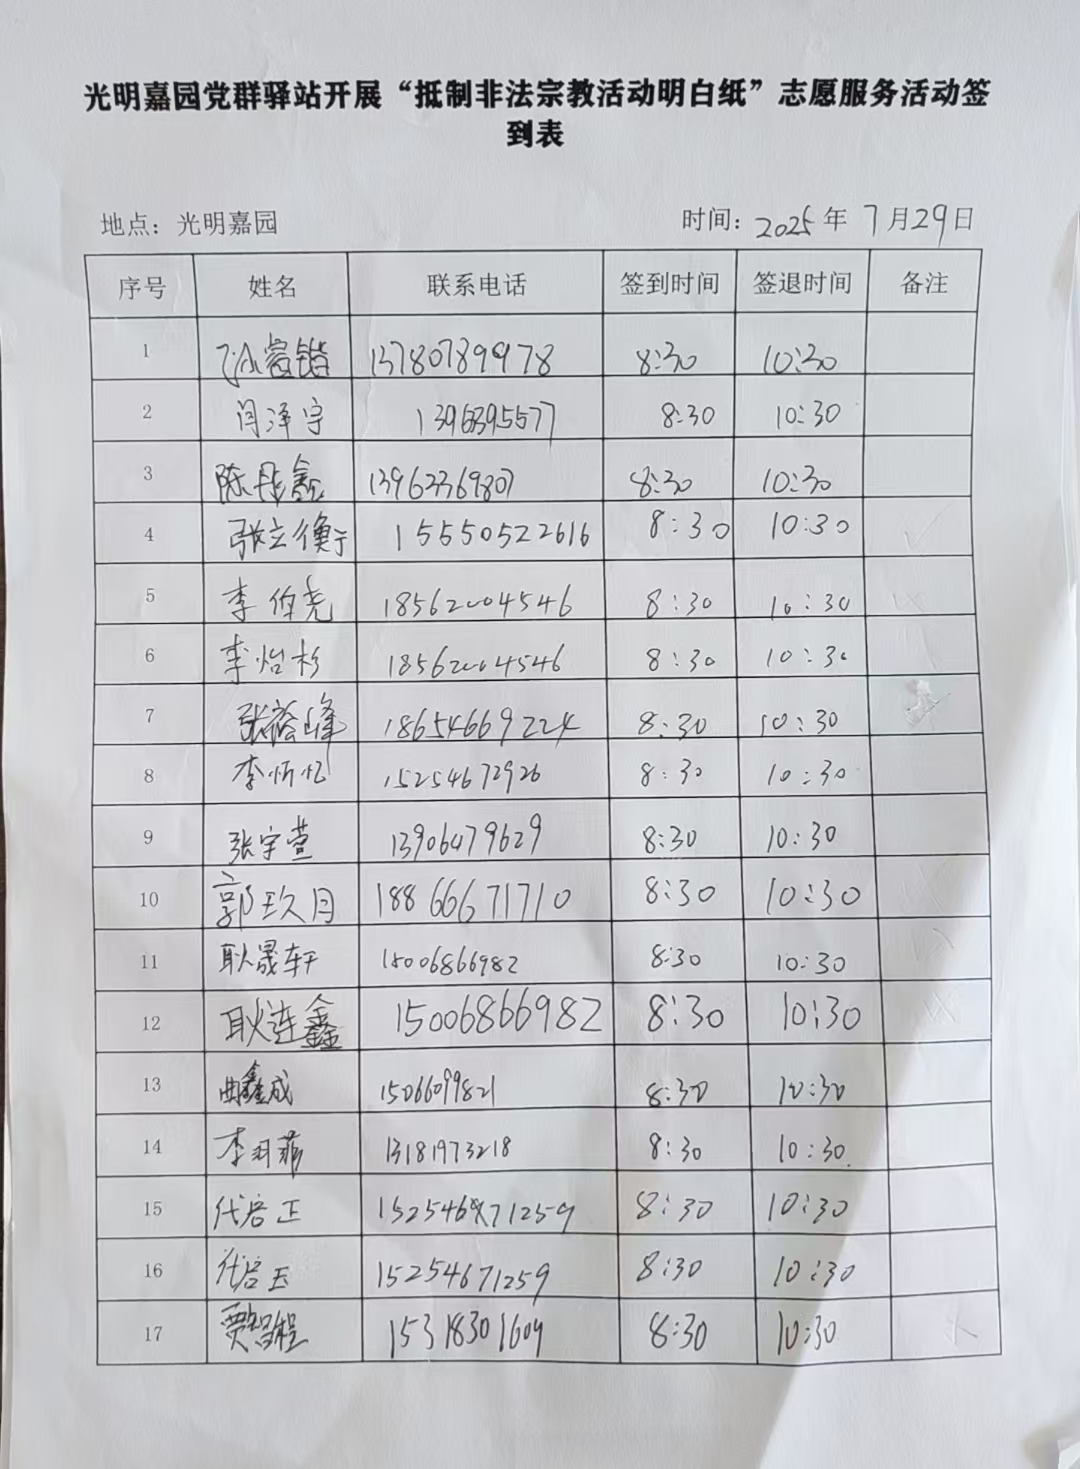 光明嘉园党群驿站开展“抵制非法宗教活动明白纸”志愿服务活动签
到表
地点：光明嘉园 时间：2025年7月29日
序号 姓名 联系电话 签到时间 签退时间 备注
1 13780789978 8:30 10:30
2 闫泽宇 1396395577 8:30 10:30
3 陈彤鑫 13962369807 8:30 10:30
4 张立衡 15550522616 8:30 10:30
5 李伯尧 18562004546 8:30 10:30
6 李怡杉 18562004546 8:30 10:30
7 张裕峰 18654669224 8:30 10:30
8 李忻忆 15254672926 8:30 10:30
9 张宇萱 13906479629 8:30 10:30
10 郭玖月 18866671710 8:30 10:30
11 耿晟轩 15006866982 8:30 10:30
12 耿连鑫 15006866982 8:30 10:30
13 曲鑫成 15066099821 8:30 10:30
14 李羽菲 13181973218 8:30 10:30
15 代培正 152546 71259 8:30 10:30
16 代培玉 15254671259 8:30 10:30
17 贾智程 15318301609 8:30 10:30